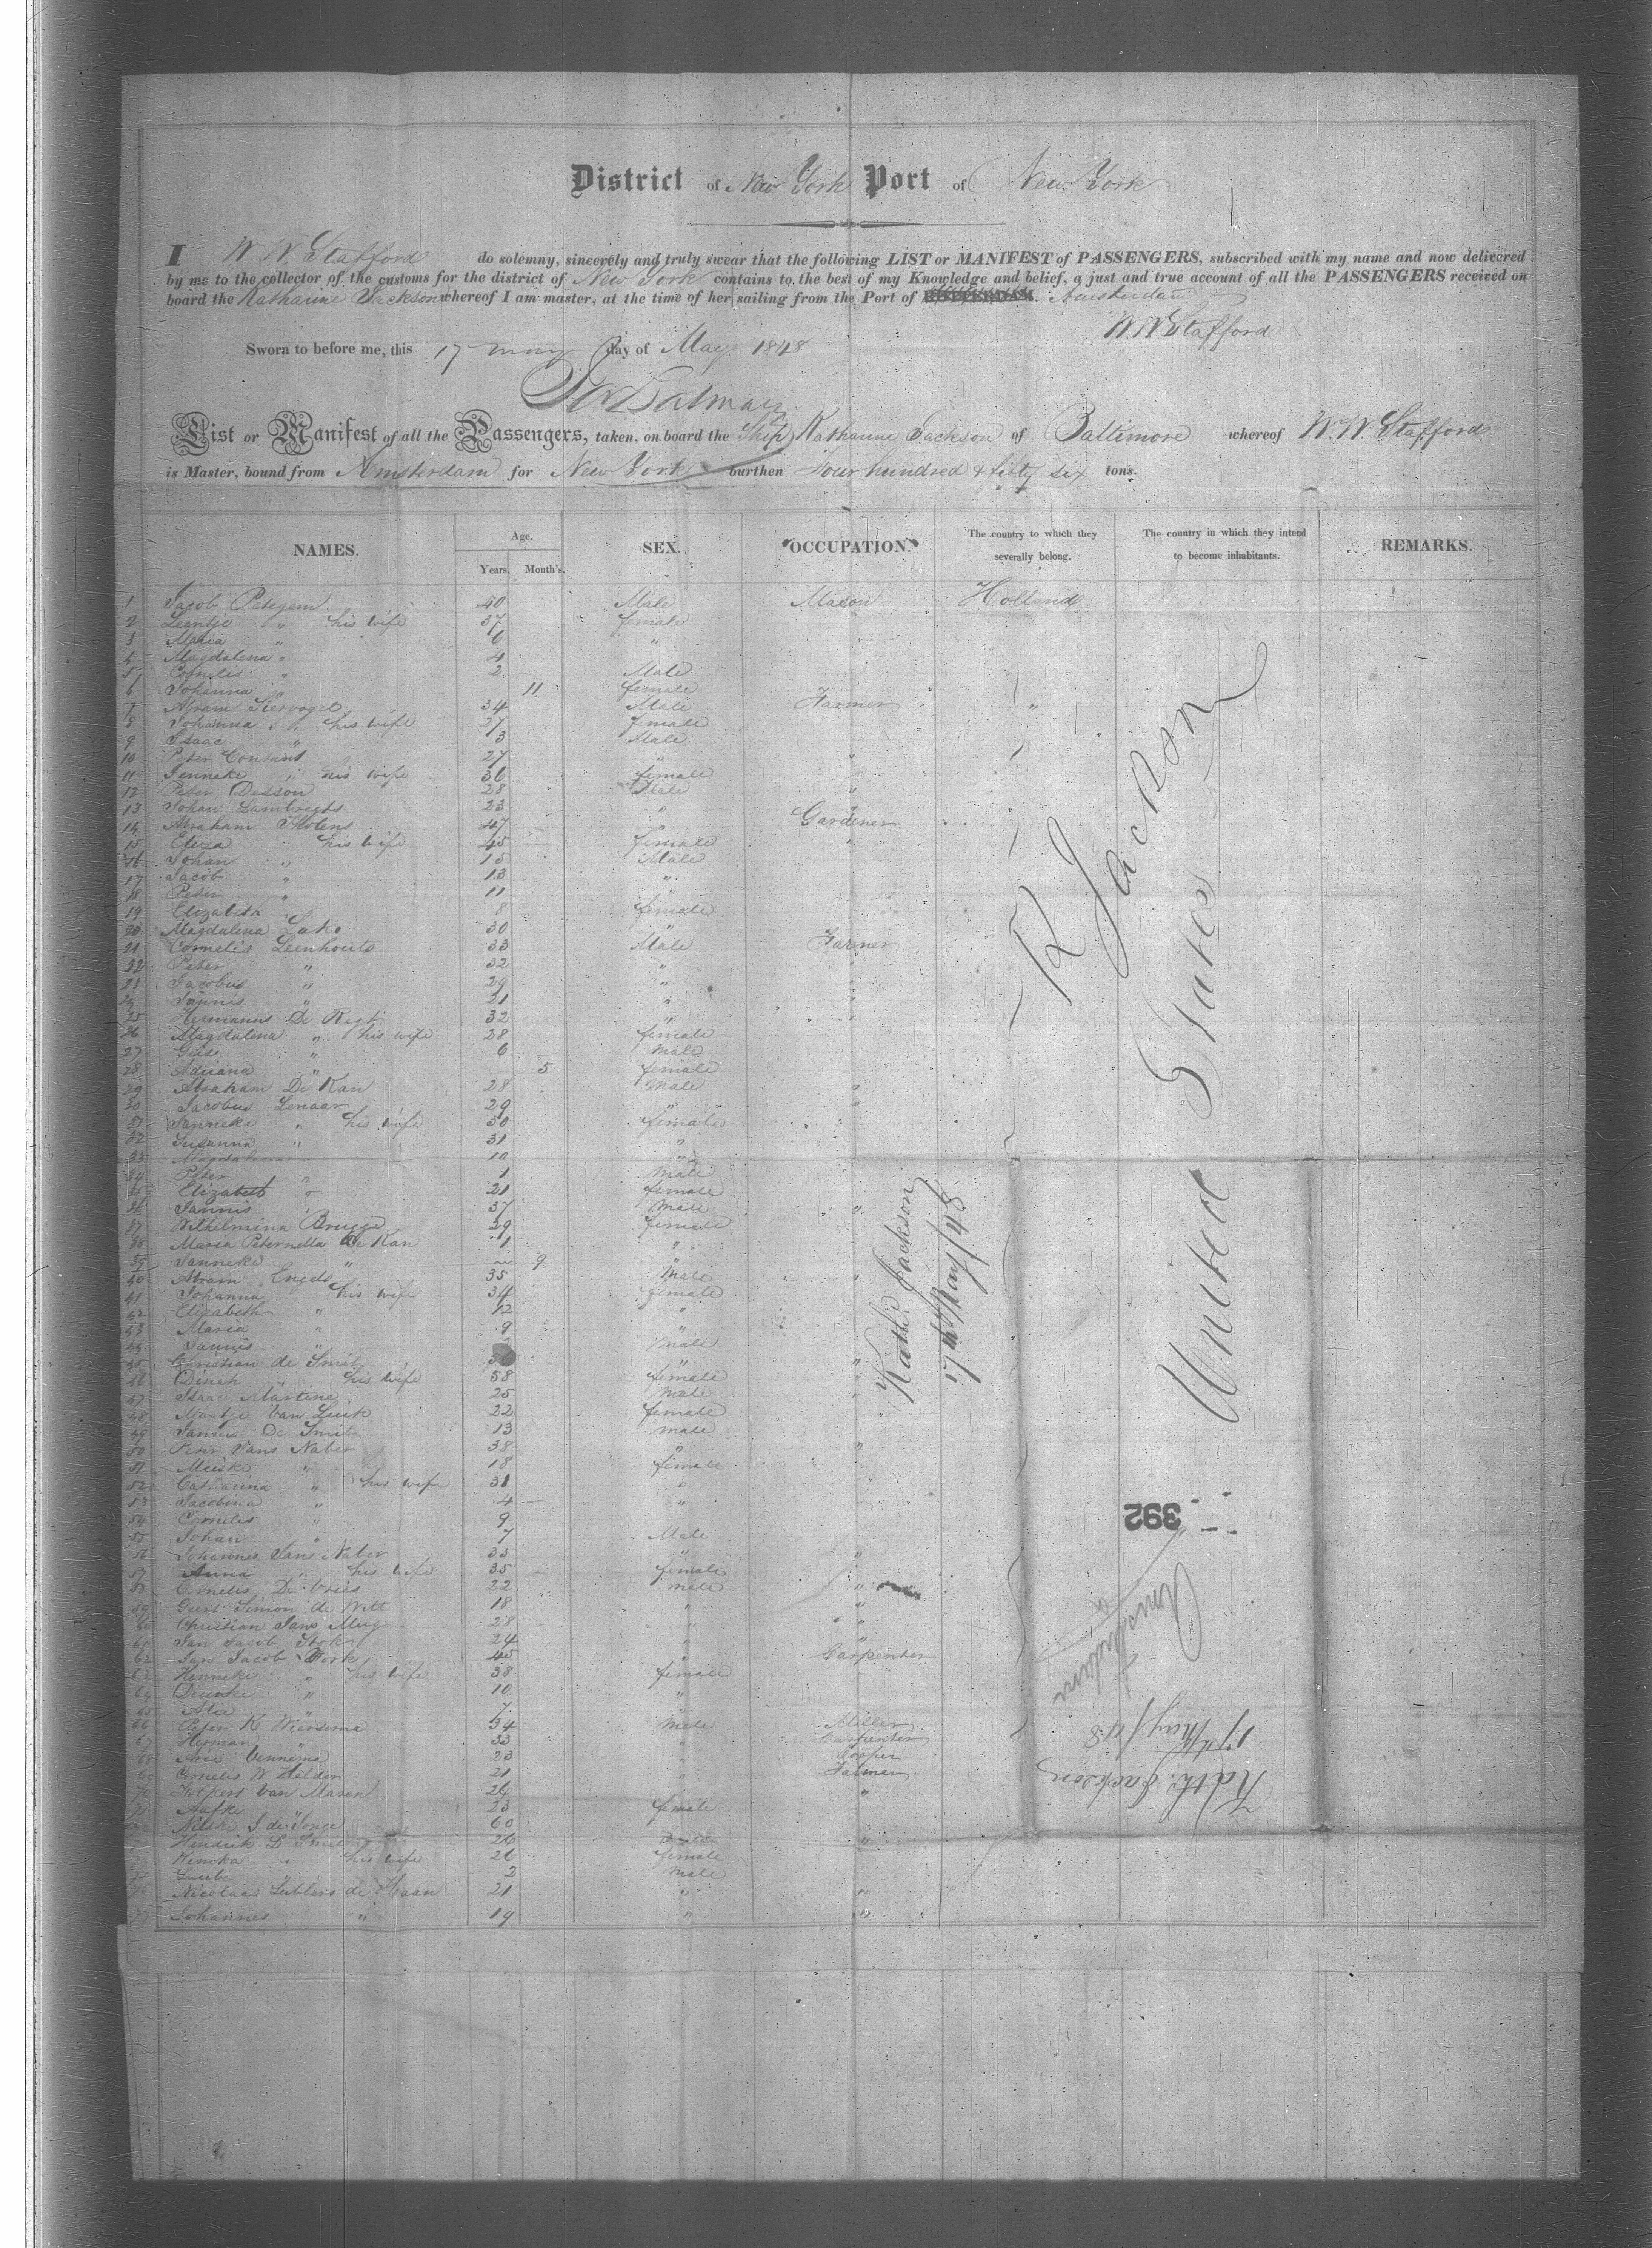 District of New York Port of New York
I W W Stafford do solemny, sincerely and truly swear that the following LIST or MANIFEST of PASSENGERS, subscribed with my name and now delivered
by me to the collector of the customs for the district of New York contains to the best of my Knowledge and belief, a just and true account of all the PASSENGERS received on
board the Katharine Jackson whereof I am master, at the time of her sailing from the Port of Amsterdam
W. W Stafford
Sworn to before me, this 17 day of May 1848
List or Manifest of all the Passengers, taken, on board the Ship Katharine Jackson of Baltimore whereof W. W. Stafford
is Master, bound from Amsterdam for New York burthen Four hundred & fifty six tons.
NAMES. Age. Years. Month's. SEX. OCCUPATION. The country to which they severally belong. The country in which they intend to become inhabitants. REMARKS.
1 Jacob Petegem 40 Male Mason Holland
2 Leentje " his wife 37 female
3 Maria " 6 "
4 Magdalena " 4
5 Cornelis " 2 Male
6 Johanna " 11 female
7 Abram Siervogel 34 Male Farmer "
8 Johanna " his wife 27 female
9 Isaac " 3 Male
10 Peter Constant 27 " "
11 Jenneke " his wife 36 female
12 Peter Dasson 28 Male "
13 Johan Lambregts 23 " "
14 Abraham 47 " Gardener
15 Eliza his wife 45 female "
16 Johan " 15 Male
17 Jacob " 13 "
18 Peter " 11 "
19 Elizabeth 8 female
20 Magdalena Lako 30 "
21 Cornelis Leenhouts 33 Male Farmer
22 Peter " 32 " "
23 Jacobus " 29 " "
24 Jannis " 21 " "
25 Hermanus De Regt 32 " "
26 Magdalena " his wife 28 female
27 6 male
28 Adriana " 5 female
29 Abraham De Kan 28 male "
30 Jacobus Lenaar 29 " "
31 Janneke " his wife 30 female
32 Susanna " 31 "
33 Magdalena 10 "
34 Peter " 1 male
35 Elizabeth 21 female
36 Jannis 37 Male "
37 Wilhelmina Brugge 29 female
38 Maria Peternella De Kan 1 "
39 Janneke " 9 "
40 Abram Engels 35 Male "
41 Johanna his wife 34 female
42 Elizabeth " 12 "
43 Maria " 9 "
44 Jannis " male
45 Christian de Smit " "
46 Dinah " his wife 58 female
47 Isaac Martine 25 male "
48 Van Luik 22 female
49 Jannis De Smit 13 male
50 Peter Jans Naber 38 " "
51 " 18 female
52 Catharina " his wife 31 "
53 Jacobina " 4 "
54 Cornelis " 9
55 Johan " 7 Male
56 Johannes Jans Naber 33 " "
57 Anna " his wife 35 female
58 Cornelis De Vries 22 male "
59 Geert Simon de Witt 18 " "
60 Christian Jans Mug 28 " "
61 Jan Jacob Stok 24 " "
62 Jan Jacob 45 Carpenter
63 Henneke " his wife 38 female
64 " 10 "
65 " 7
66 Peter K Wiersema 34 Male Miller
67 Herman " 33 " Carpenter
68 Arie Vennema 23 " Cooper
69 Cornelis W Hilder 21 " Farmer
70 Van Maren 24 "
71 Aafke 23 female
72 J de Jonge 60
73 Hendrik D Smit 26 "
74 " his wife 26 female
75 2 male
76 Nicolaas Lubbers de Haan 21 " "
77 Johannes " 19 " "
K Jackson
United States
Kath. Jackson
17th May/48
392
Amsterdam
17th May/48
Kath. Jackson